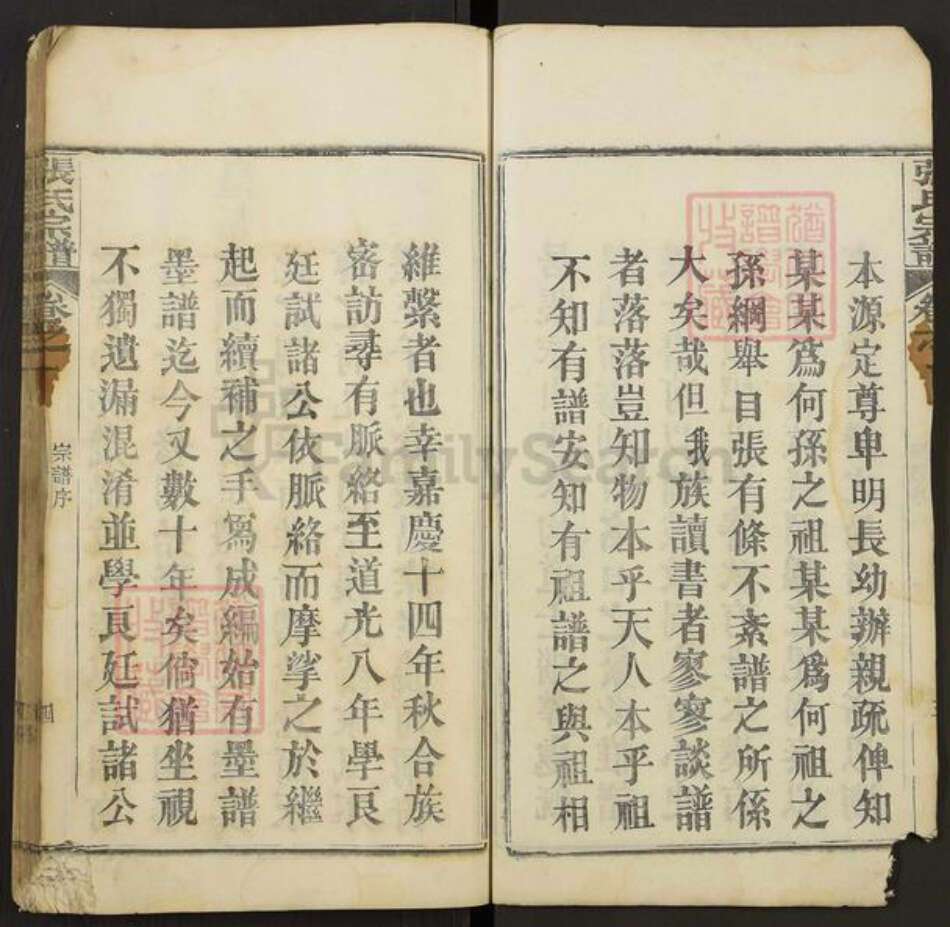 張氏宗譜
本源定尊卑明長幼辦親疏俾知
某某爲何孫之祖某某爲何祖之
孫綱舉目張有條不紊譜之所係
大矣哉但我族讀書者寥寥談譜
者落落豈知物本乎天人本乎祖
不知有譜安知有祖譜之與祖相
維繫者也幸嘉慶十四年秋合族
密訪尋有脈絡至道光八年學良
廷試諸公依脈絡而摩挲之於繼
起而續補之手寫成編始有墨譜
墨譜迄今又數十年矣倘猶坐視
不獨遺漏混淆並學良廷試諸公
張氏宗譜
宗譜序
四
FamilySearch